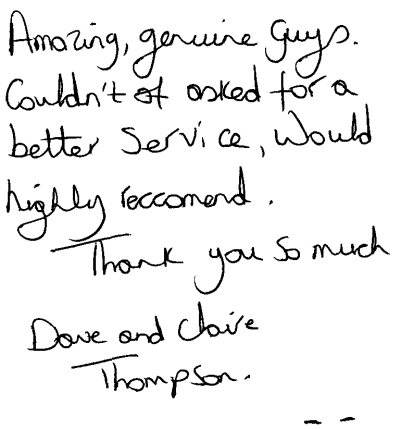 Amazing, genuine guys.
Couldn't of asked for a
better Service, Would
highly reccomend.
Thank you so much
Dave and Claire
Thompson.